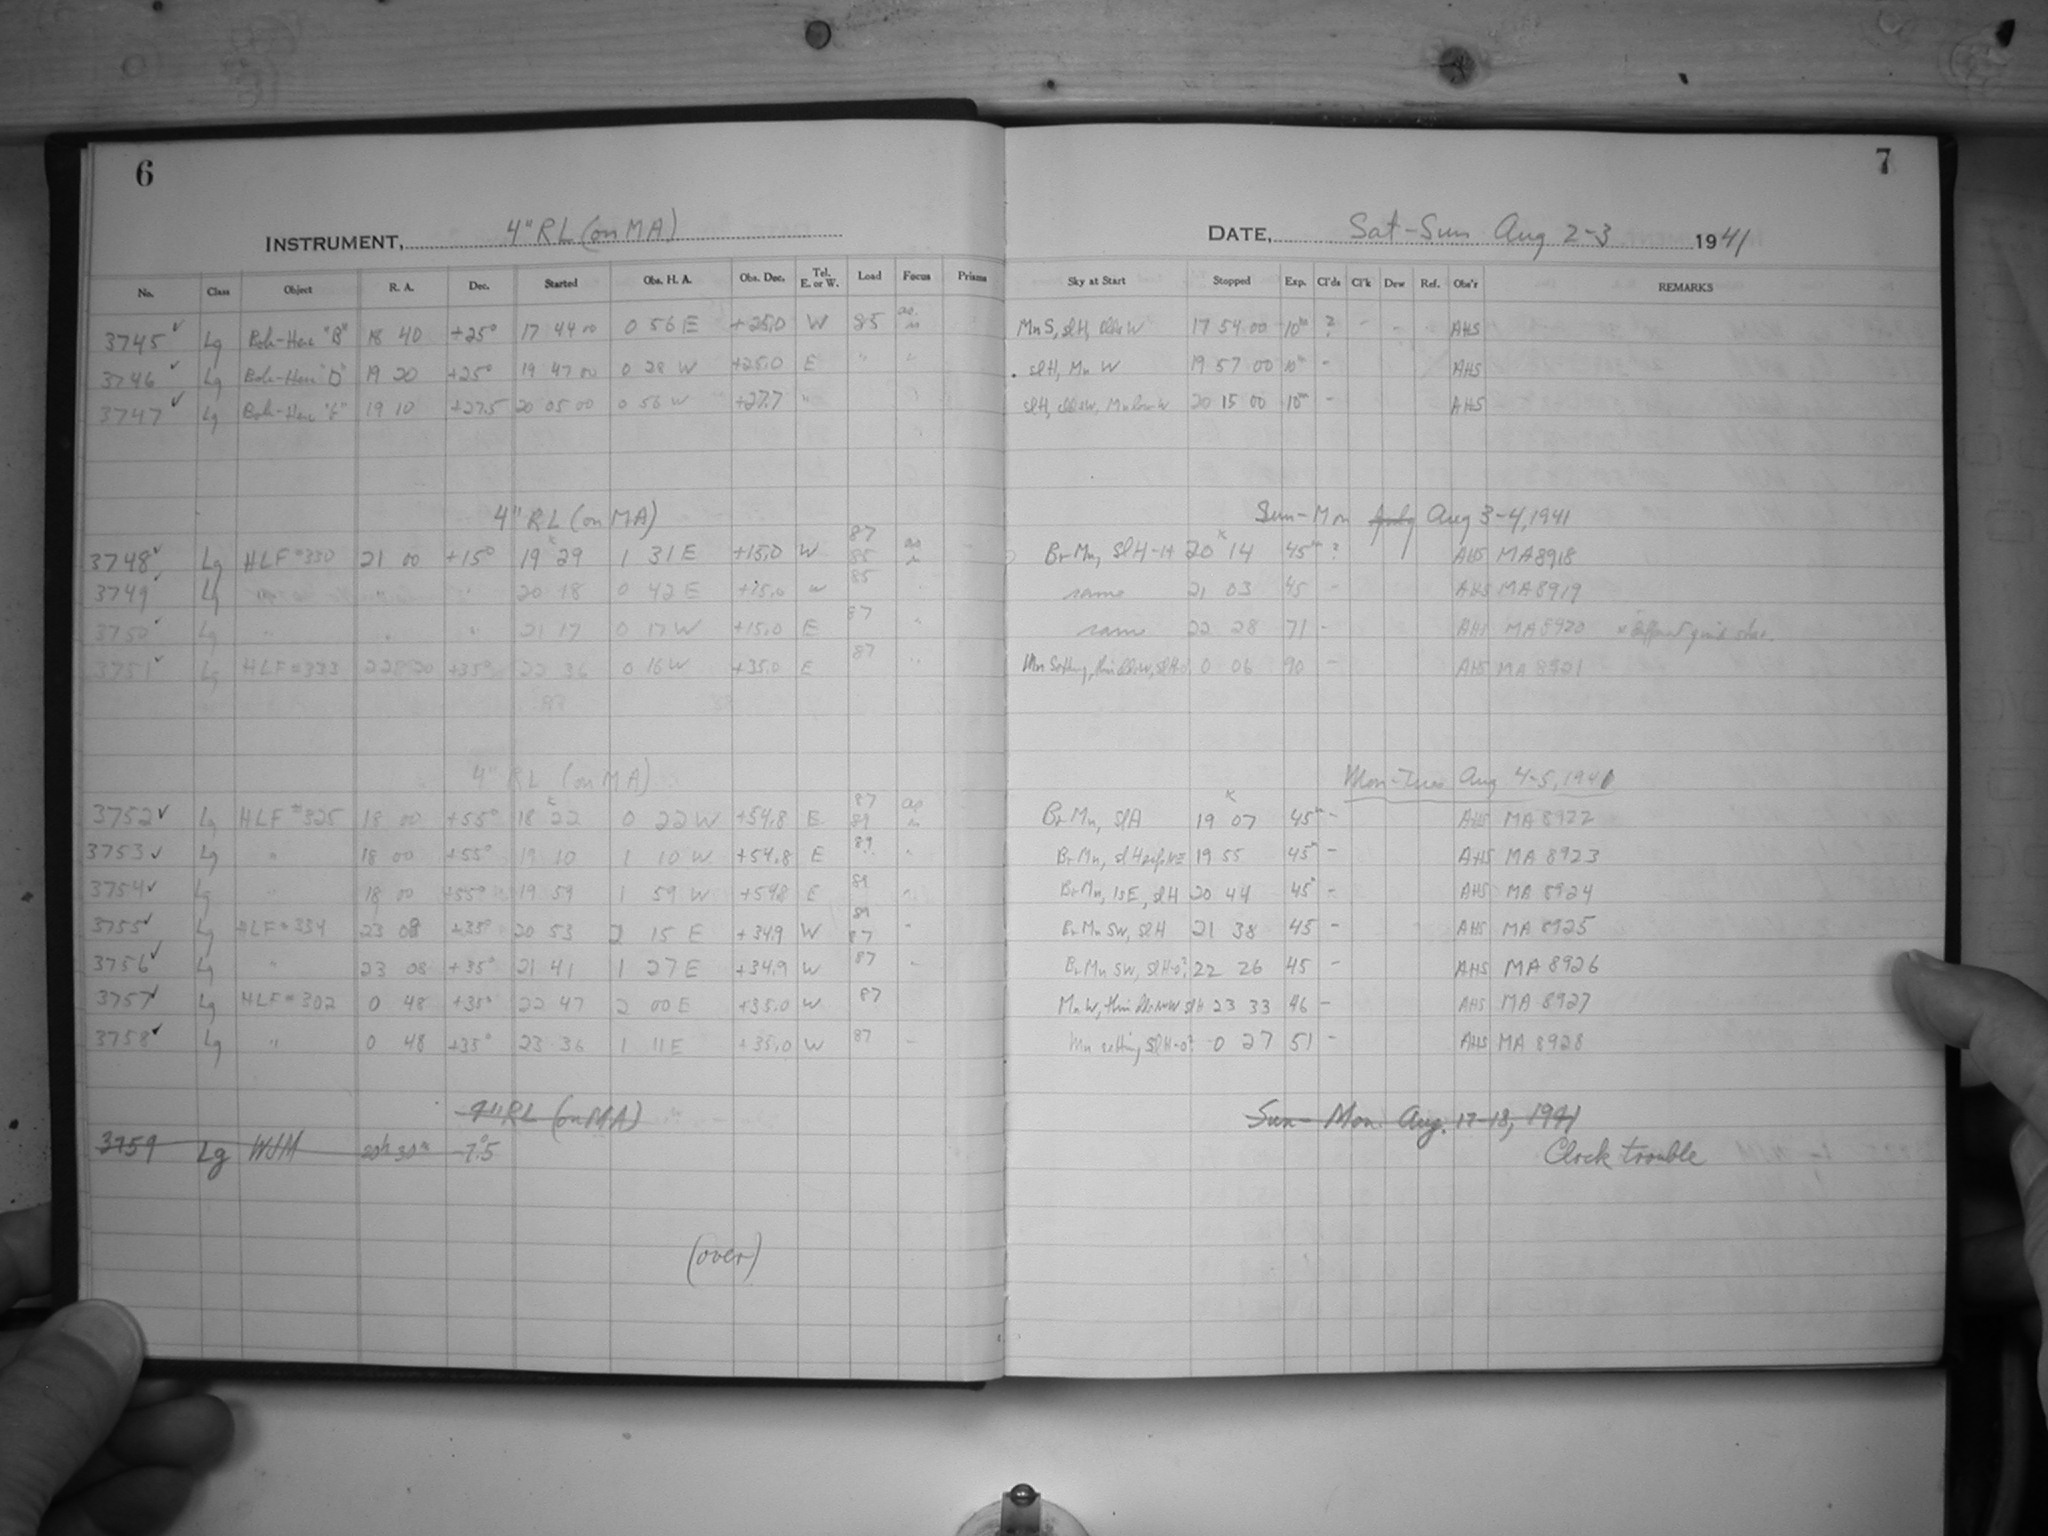 6
INSTRUMENT, 4" RL (on MA)
No. Class Object R. A. Dec. Started Obs. H. A. Obs. Dec. Tel. E. or W. Load Focus Prisms
3745 ✓ Lg "B" 18 40 +25° 17 44 00 0 56 E +25.0 W 85
3746 ✓ Lg "D" 19 20 +25° 19 47 00 0 28 W +25.0 E "
3747 ✓ Lg 19 10 +27.5 20 05 00 0 56 W +27.7 "
4" RL (on MA)
3748 ✓ Lg HLF #330 21 00 +15° 19 29 1 31 E +15.0 W 87 85
3749 Lg " " 20 18 0 42 E +15.0 W 85
3750 ✓ Lg " " " 21 17 0 17 W +15.0 E 87
3751 ✓ Lg HLF #333 +35° 22 36 0 16 W +35.0 E 87
4" RL (on MA)
3752 ✓ Lg HLF #325 18 00 +55° 18 22 0 22 W +54.8 E 87 89
3753 ✓ Lg " 18 00 +55° 19 10 1 10 W +54.8 E 89
3754 ✓ Lg " 18 00 +55° 19 59 1 59 W +54.8 E 89
3755 ✓ Lg HLF #334 23 08 +35° 20 53 2 15 E +34.9 W 89 87
3756 ✓ Lg " 23 08 +35° 21 41 1 27 E +34.9 W 87
3757 ✓ Lg HLF #302 0 48 +35° 22 47 2 00 E +35.0 W 87
3758 ✓ Lg " 0 48 +35° 23 36 1 11 E +35.0 W 87
4" RL (on MA)
3759 Lg WJM 20h 30m -7.°5
(over)
7
DATE, Sat-Sun Aug 2-3 1941
Sky at Start Stopped Exp. Cl'ds Cl'k Dew Ref. Obs'r REMARKS
Mn S, sl H, W 17 54 00 10m ? - AHS
sl H, Mn W 19 57 00 10m - AHS
sl H, Mn W 20 15 00 10m - AHS
Sun-Mon July Aug 3-4, 1941
Br Mn, Sl H-H 20 14 45m ? AHS MA 8918
same 21 03 45 - AHS MA 8919
same 22 28 71 - AHS MA 8920 x different guide star.
Mn Setting, 0 06 90 - AHS MA 8921
Mon-Tues Aug 4-5, 1941
Br Mn, Sl H 19 07 45m - AHS MA 8922
Br Mn, sl H 19 55 45m - AHS MA 8923
Br Mn, sl H 20 44 45m - AHS MA 8924
Br Mn SW, sl H 21 38 45 - AHS MA 8925
Br Mn SW, sl H-0? 22 26 45 - AHS MA 8926
Mn W, thin sl H 23 33 46 - AHS MA 8927
Mn setting Sl H-0? 0 27 51 - AHS MA 8928
Sun-Mon. Aug. 17-18, 1941
Clock trouble